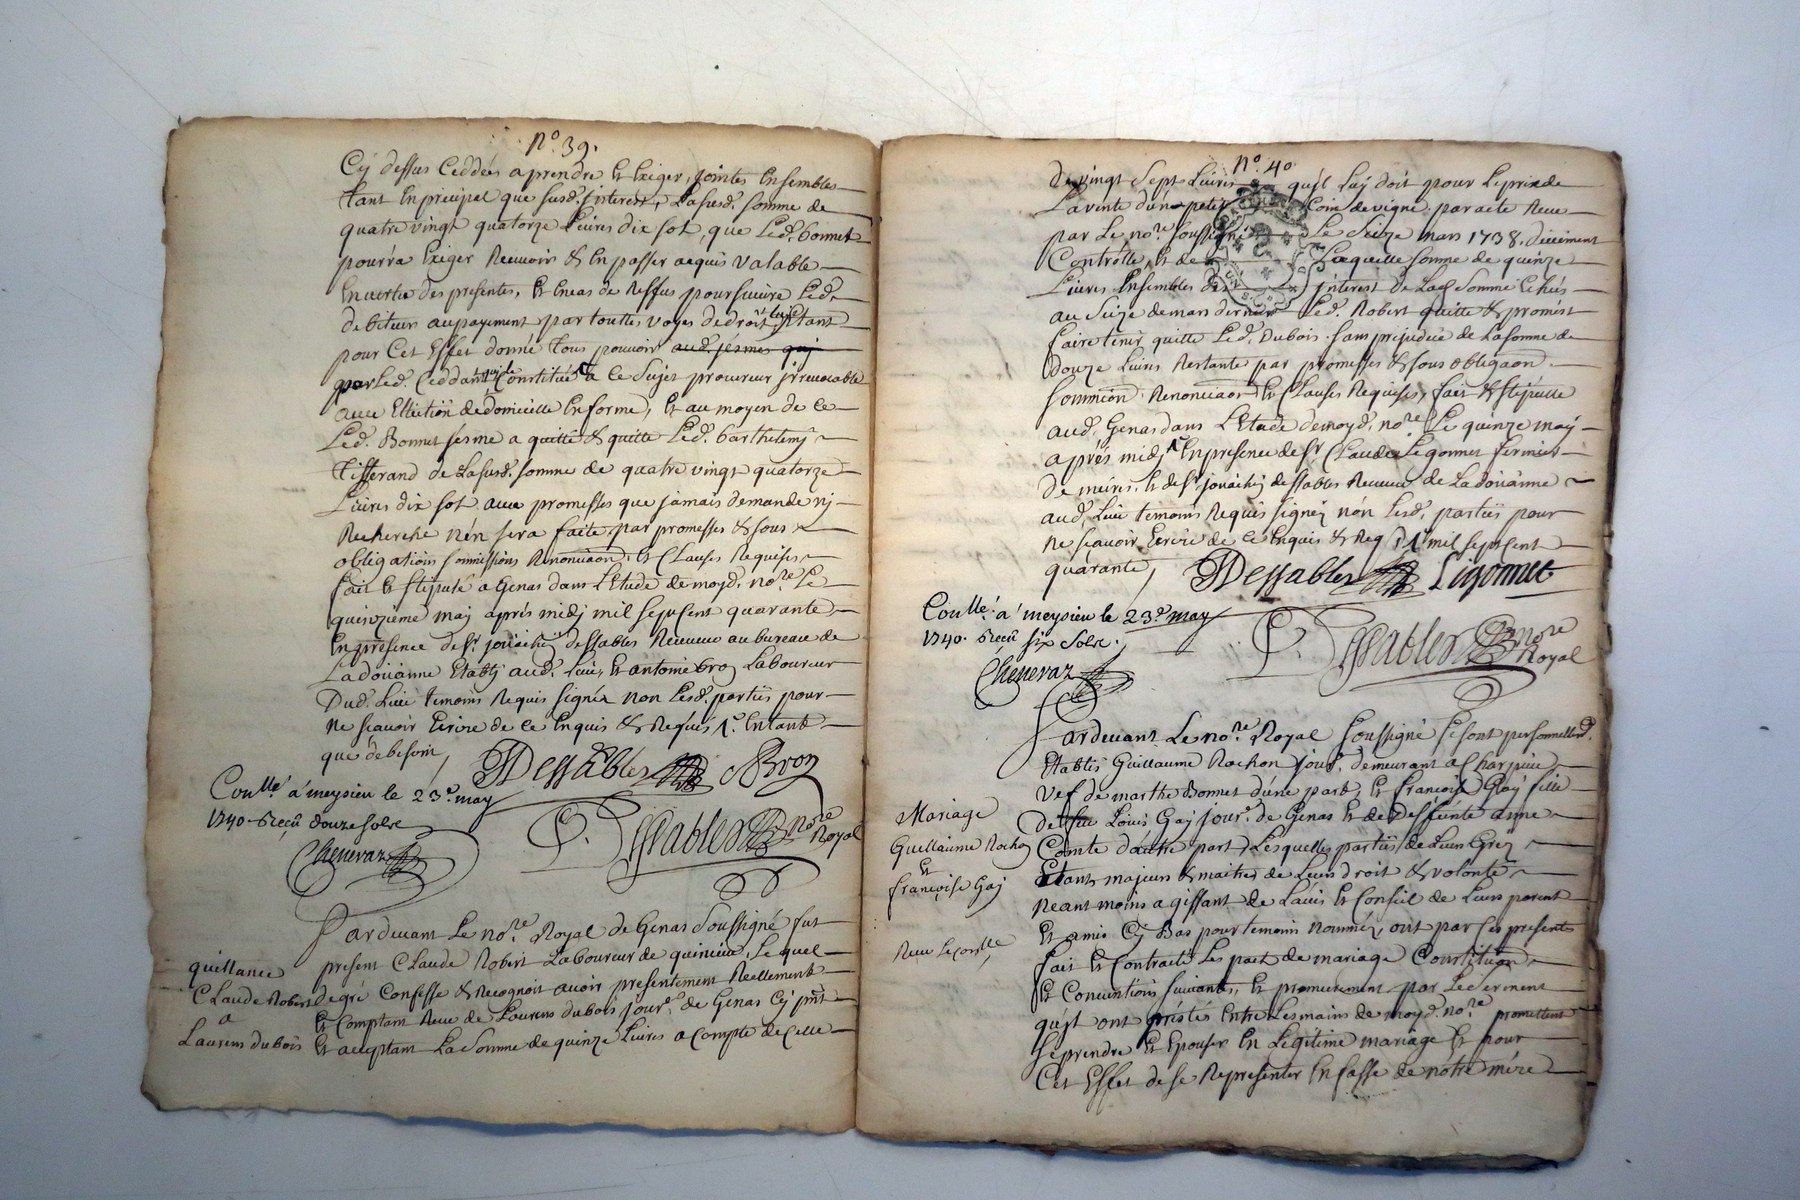 N.º 39.
Cÿ dessus Ceddées a prendre et Exiger, jointes Ensembles
tant En principal que susd. interest, La susd. somme de
quatre vingt quatorze Livres dix sol, que Led. bonnet
pourra Exiger Recevoir & En passer acquis valable
En vertu des presentes, Et En cas de Reffus poursuivre Led.
debiteur au payement par touttes voyes de droit, luy Etant
pour Cet Effet donné tous pouvoir aud. sésmes qui
par Led. Ceddant qui le Constitué a Ce sujet procureur jrrevocable
avec Ellection de domicille En forme, Et au moyen de ce
Led. Bonnet sésme a quitté & quitte Led. barthelemj
Tisserand de La susd. somme de quatre vingt quatorze
Livres dix sol avec promesses que jamais demande nj
Recherche n'en sera faite par promesses & sous
obligations soumissions Renonciaôn, et Clauses Requises
fait et stipulé a Genas dans L'Etude de moyd. no.re Le
quinzieme maj aprés midj mil sept Cent quarante
En présence de sr. joüachin dessables Receveur au bureau de
La doüanne Etablj aud. Lieu, Et antoine bron Laboureur
Dud. Lieu temoins Requis signés non Lesd. partiës pour
ne sçavoir Ecrire de ce Enquis & Requis /. Entant
que de besoin,
Dessables ABron
Conllé. á meysieu le 23.e may
1740. Reçû douze sols
Chenevaz
P. Dessables no.re Royal
Pardevant Le no.re Royal de Genas Soussigné fut
present Claude Robert Laboureur de quincieu, Lequel
quittance
Claude Robert
a
Laurens dubois
de gré Confesse & Recognoit avoir presentement Reellement
Et Comptant Receu de Laurens dubois jour.r de Genas Cÿ pnt.
Et acceptant La Somme de quinze Livres a Compte de Celle
N.º 40
de vingt Sept Livres qu'il Luÿ doit pour Le prix de
La vente d'un petit Coin de vigne par acte Receu
par Le no.re soussigné Le Seize mars 1738. düement
Contrôllé, Et de Laquelle somme de quinze
Livres Ensembles des jnterest de Lad. Somme Echüs
au Seize de mars dernier Led. Robert quitte & promest
faire tenir quitte Led. Dubois sans prejudice de La somme de
douze Livres Restante par promesses & sous obligaôn
sommiôn Renonciaôn Et Clauses Requises, fait & stipullé
aud. Genas dans L'Etude de moyd. no.re Le quinze maÿ
aprés midj En presence de sr. Claude Legonnet fermier
de méires, et de sr. joüachin dessables Receveur de La doüanne
aud. Lieu temoins Requis signéz nón Lesd. partiës pour
ne sçavoir Ecrire de Ce Enquis & Req. /. mil sept Cent
quarante,
Dessables Ligonnet
Conllé. á meysieu le 23.e may
1740. Reçû six sols.
Chenevaz
P. Dessables no.re Royal
Pardevant Le no.re Royal soussigné se sont personnellemt.
Etablis Guillaume Rochon jour.r demeurant a Charpieu
vef. de marthe Bonnet d'une part, Et françoise Gaÿ fille
de feu Loüis Gaÿ jour.r de Genas Et de Deffeinte anne
Mariage
Guillaume Rochon
Et
françoise Gaÿ
Receu Le Conllé
Comte d'autre part, Lesquelles partiës de Leurs Grez
Etants majeurs & maitres de Leurs droit & volonté
neant moins agissant de L'avis Et Conseil de Leurs parent
Et amis Cÿ Bas pour temoin Nommés, ont par Ces presents
fait Et Contracté Les pact de mariage Constituôn
Et Conventions suivantes, Et premierement par Le Serment
qu'jl ont prestés Entre Les mains de moyd. no.re promettent
se prendre Et Epouser En Legitime mariage Et pour
Cet Effet de se Représenter En fasse de notre mére